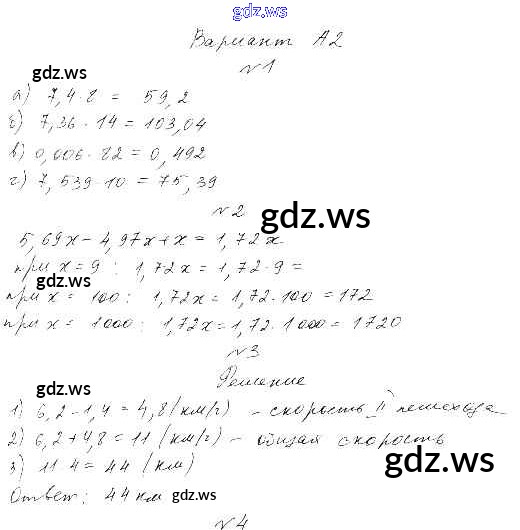 gdz.ws
Вариант А2
№1
gdz.ws
а) 7,4·8 = 59,2
б) 7,36·14 = 103,04
в) 0,006·82 = 0,492
г) 7,539·10 = 75,39
№2
gdz.ws
5,69x - 4,97x + x = 1,72x
при x = 9 : 1,72x = 1,72·9 =
gdz.ws
при x = 100 : 1,72x = 1,72·100 = 172
при x = 1000 : 1,72x = 1,72·1000 = 1720
№3
Решение
gdz.ws
1) 6,2 - 1,4 = 4,8 (км/ч) - скорость II пешехода
2) 6,2 + 4,8 = 11 (км/ч) - общая скорость
3) 11·4 = 44 (км)
gdz.ws
Ответ: 44 км
gdz.ws
№4